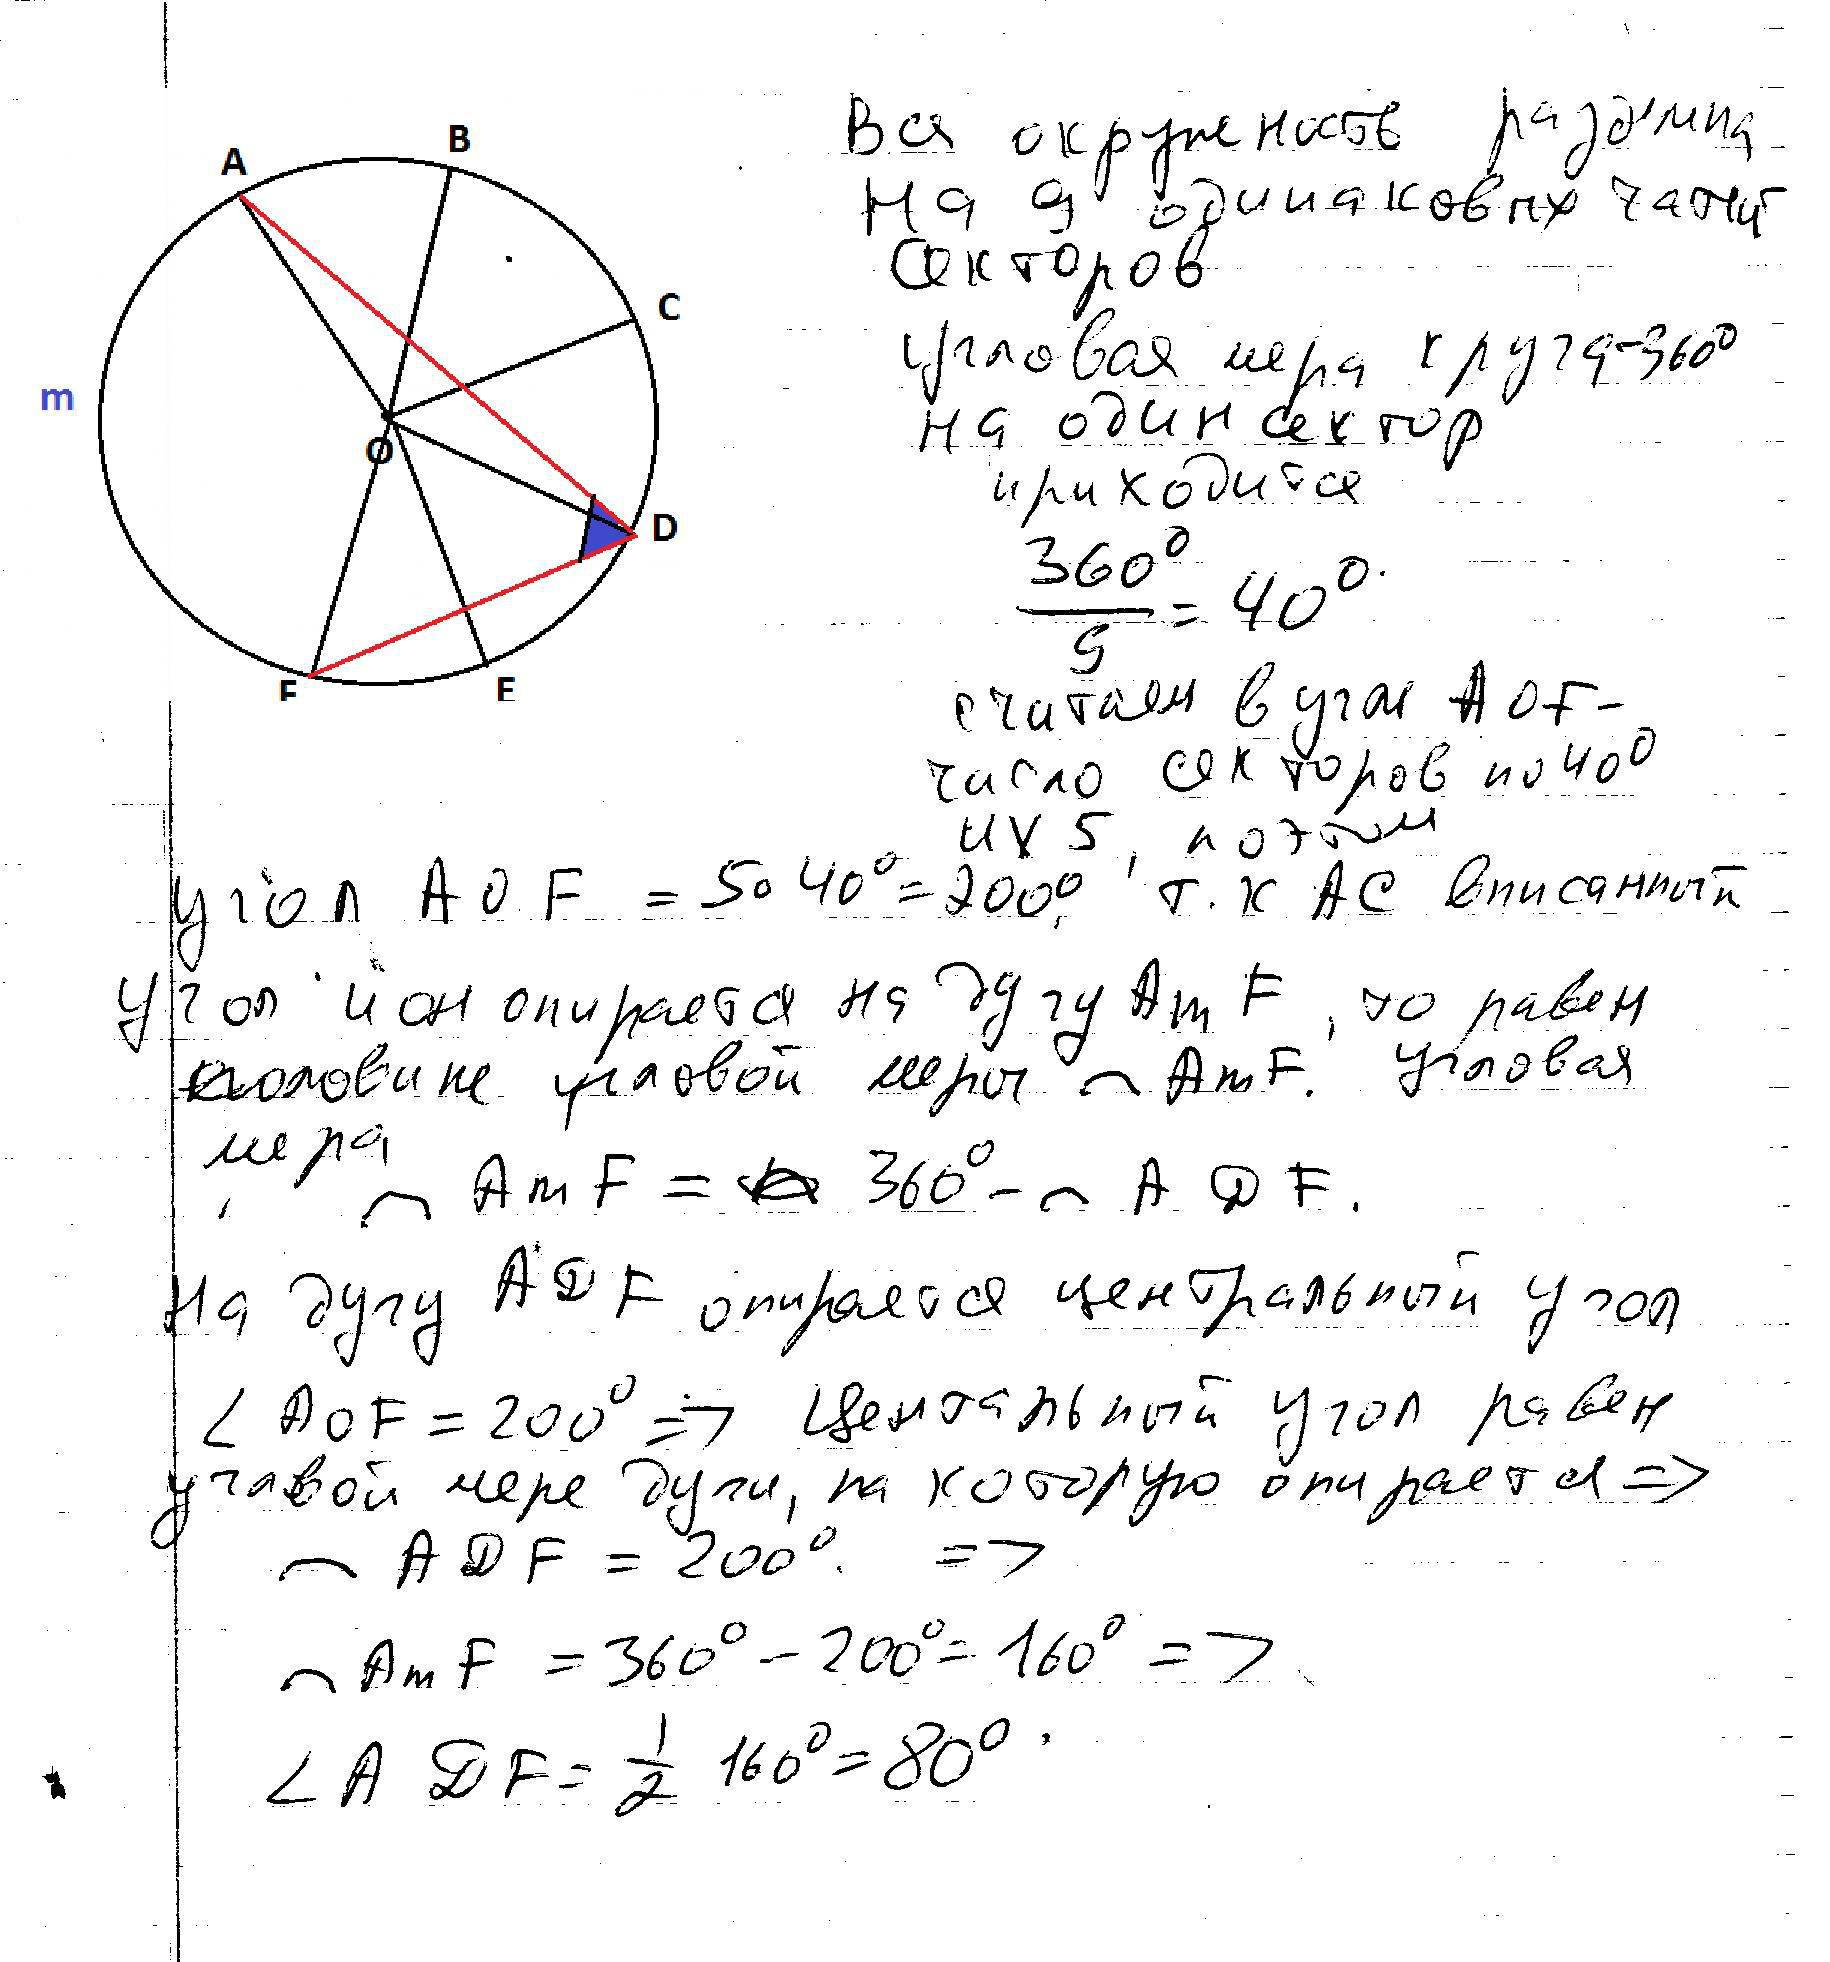 A
B
C
m
O
D
F
E
Вся окружность разделена
на 9 одинаковых частей
секторов
угловая мера круга-360⁰
на один сектор
приходится
360⁰
9
= 40⁰.
считаем в угле AOF-
число секторов по 40⁰
их 5, поэтом
угол AOF = 5∘40⁰=200⁰, т.к AC вписанный
угол и он опирается на дугу AmF, то равен
половине угловой меры ⌒ AmF. Угловая
мера
⌒ AmF = 360⁰-⌒ ADF.
На дугу ADF опирается центральный угол
∠AOF=200⁰ => Центальный угол равен
угавой мере дуги, на которую опирается =>
⌒ ADF = 200⁰. =>
⌒ AmF = 360⁰-200⁰=160⁰ =>
∠ADF= 1/2 160⁰=80⁰.